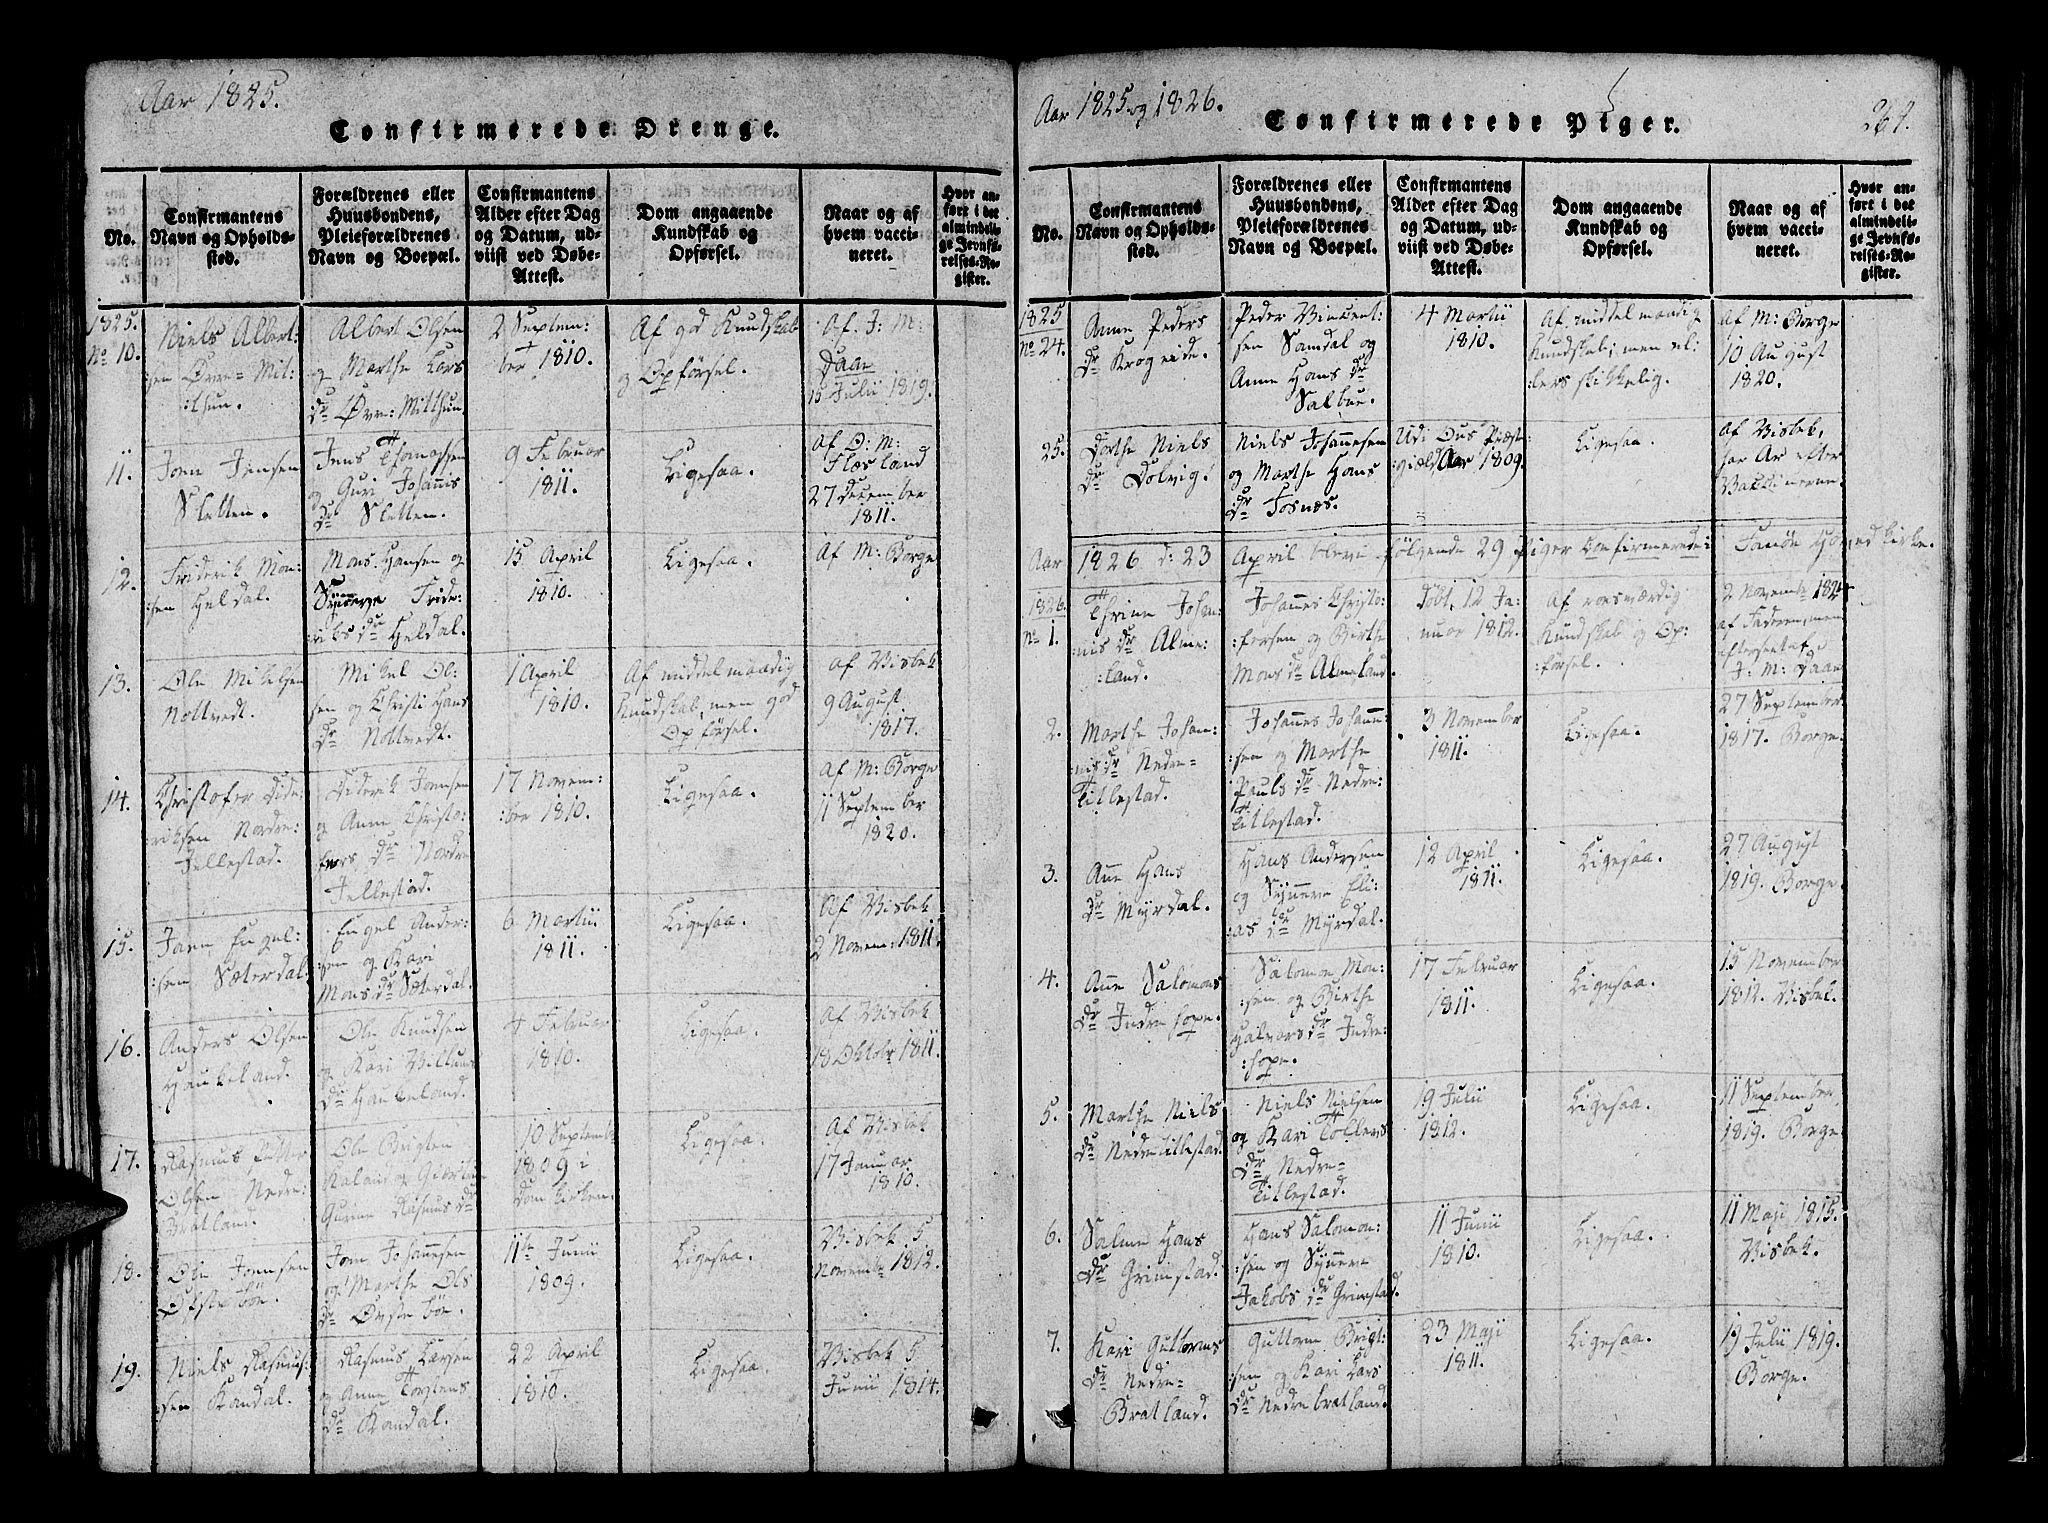 Aar 1825.
Confirmerede Drenge.
No.
Confirmantens
Navn og Opholds-
sted.
Forældrenes eller
Huusbondens,
Pleieforældrenes
Navn og Boepæl.
Confirmantens
Alder efter Dag
og Datum, ud-
viist ved Døbe-
Attest.
Dom angaaende
Kundskab og
Opførsel.
Naar og af
hvem vacci-
neret.
Hvor an-
ført i det
almindeli-
ge Jevnfø-
relses-Re-
gister.
1825.
No 10.
Niels Albert:
:sen Øvre=Mit:
:thun.
Albert Olsen
og Marthe Lars
dr Øvre: Mitthun.
2 Septem:
ber 1810.
Af god Kundskab
og Opførsel.
Af. J: M:
Daae
15 Julii 1819.
11.
Joen Jensen
Sletten.
Jens Thomassen
og Guri Johannis
dr Sletten.
9 Februar
1811.
Ligesaa.
Af O: M:
Flesland
27 December
1811.
12.
Friderik Mon:
:sen Heldal.
Mons Hansen og
Synneve Fride:
:riks dr Heldal.
15 April
1810.
Ligesaa.
Af M: Borge
13.
Ole Mikelsen
Nottvedt.
Mikel Ol:
sen og Christi Hans
dr Nottvedt.
1 April
1810.
Af middelmaadig
Kundskab, men god
Opførsel.
Af Visbek
9 August
1817.
14.
Christofer Dide:
riksen Nordre:
Fellestad.
Diderik Joensen
og Anne Christo:
fers dr Nordre
Fellestad.
17 Novem:
:ber 1810.
Ligesaa.
Af M: Borge
11 September
1820.
15.
Joen Engel:
:sen Sæterdal.
Engel Ander:
:sen og Kari
Mons dr Sæterdal.
6 Martii
1811.
Ligesaa.
Af Visbek
2 Novem: 1811.
16.
Anders Olsen
Haukeland.
Ole Knudsen
og Kari Villums
dr Haukeland.
4 Februar
1810.
Ligesaa.
Af Visbek
18 Oktobr 1811.
17.
Rasmus
Olsen Nedre:
Bratland.
Ole Brigten
Gurine Rasmus dr
10 Septembr
1809 i
Domkirken.
Ligesaa.
Af Visbek
17 Januar
1810.
18.
Ole Joensen
Øfstebøe.
Joen Johannesen
og Marthe Ols
dr Øvstebøe.
11te Junii
1809.
Ligesaa.
Visbek 5
Novembr 1812.
19.
Niels Rasmus:
:sen Kandal.
Rasmus Larsen
og Anne Torstens
dr Kandal.
22 April
1810.
Ligesaa.
Visbek 5
Junii 1814.
Aar 1825 og 1826.
Confirmerede Piger.
267.
No.
Confirmantens
Navn og Opholds-
sted.
Forældrenes eller
Huusbondens,
Pleieforældrenes
Navn og Boepæl.
Confirmantens
Alder efter Dag
og Datum, ud-
viist ved Døbe-
Attest.
Dom angaaende
Kundskab og
Opførsel.
Naar og af
hvem vacci-
neret.
Hvor an-
ført i det
almindeli-
ge Jevnfø-
relses-Re-
gister.
1825
No 24.
Anne Peders
dr Krogeide.
Peder Vincent:
sen Samdal og
Anne Hans dr
Salbue.
4 Martii
1810.
Af middelmaadig
Kundskab; men el:
:lers skikkelig.
Af M: Borge
10 August
1820.
25.
Dorthe Niels
dr Dolvig.
Niels Johannesen
og Marthe Hans
dr Fosnæs.
Udi Ous Præste
:gield Aar 1809.
Ligesaa.
Af Visbek,
har Ar efter
Vaccinerne
Aar 1826 d: 23 April bleve følgende 29 Piger Confirmerede i Fanøe Hovedkirke.
1826.
No 1.
Thrine Johan:
:nis dr Alme:
:land.
Johannes Christo:
:fersen og Birthe
Mons dr Almeland.
Døbt. 12 Ja:
nuar 1812.
Af roesværdig
Kundskab og Op:
:førsel.
2 Novembr 1820
af Faderen, men
efterseet af
J: M: Daae
2.
Marthe Johan:
:nis dr Nedre=
Titlestad.
Johannes Johann:
:sen og Marthe
Pauls dr Nedre:
Titlestad.
3 November
1811.
Ligesaa.
27 September
1817. Borge.
3.
Ane Hans
dr Myrdal.
Hans Andersen
og Synneve Eli:
:as dr Myrdal.
12 April
1811.
Ligesaa.
27 August
1819. Borge.
4.
Ane Salomons
dr Indre Hope.
Salomon Mon:
:sen og Birthe
Halvors dr Indre:
:hope.
17 Februar
1811.
Ligesaa.
15 November
1812. Visbek.
5.
Marthe Niels
dr Nedretitlestad.
Niels Nielsen
og Kari Tollevs
dr Nedre=
Titlestad.
19 Julii
1812.
Ligesaa.
11 September
1819. Borge.
6.
Salme Hans
dr Grimstad.
Hans Salomon:
:sen og Synneve
Jakobs dr Grimstad.
11 Junii
1810.
Ligesaa.
11 Maji 1815.
Visbek.
7.
Kari Guttorms
dr Nedre=
Bratland.
Guttorm Brigt:
sen og Kari Lars
dr Nedre bratland.
23 Maji
1811.
Ligesaa.
19 Julii 1819.
Borge.